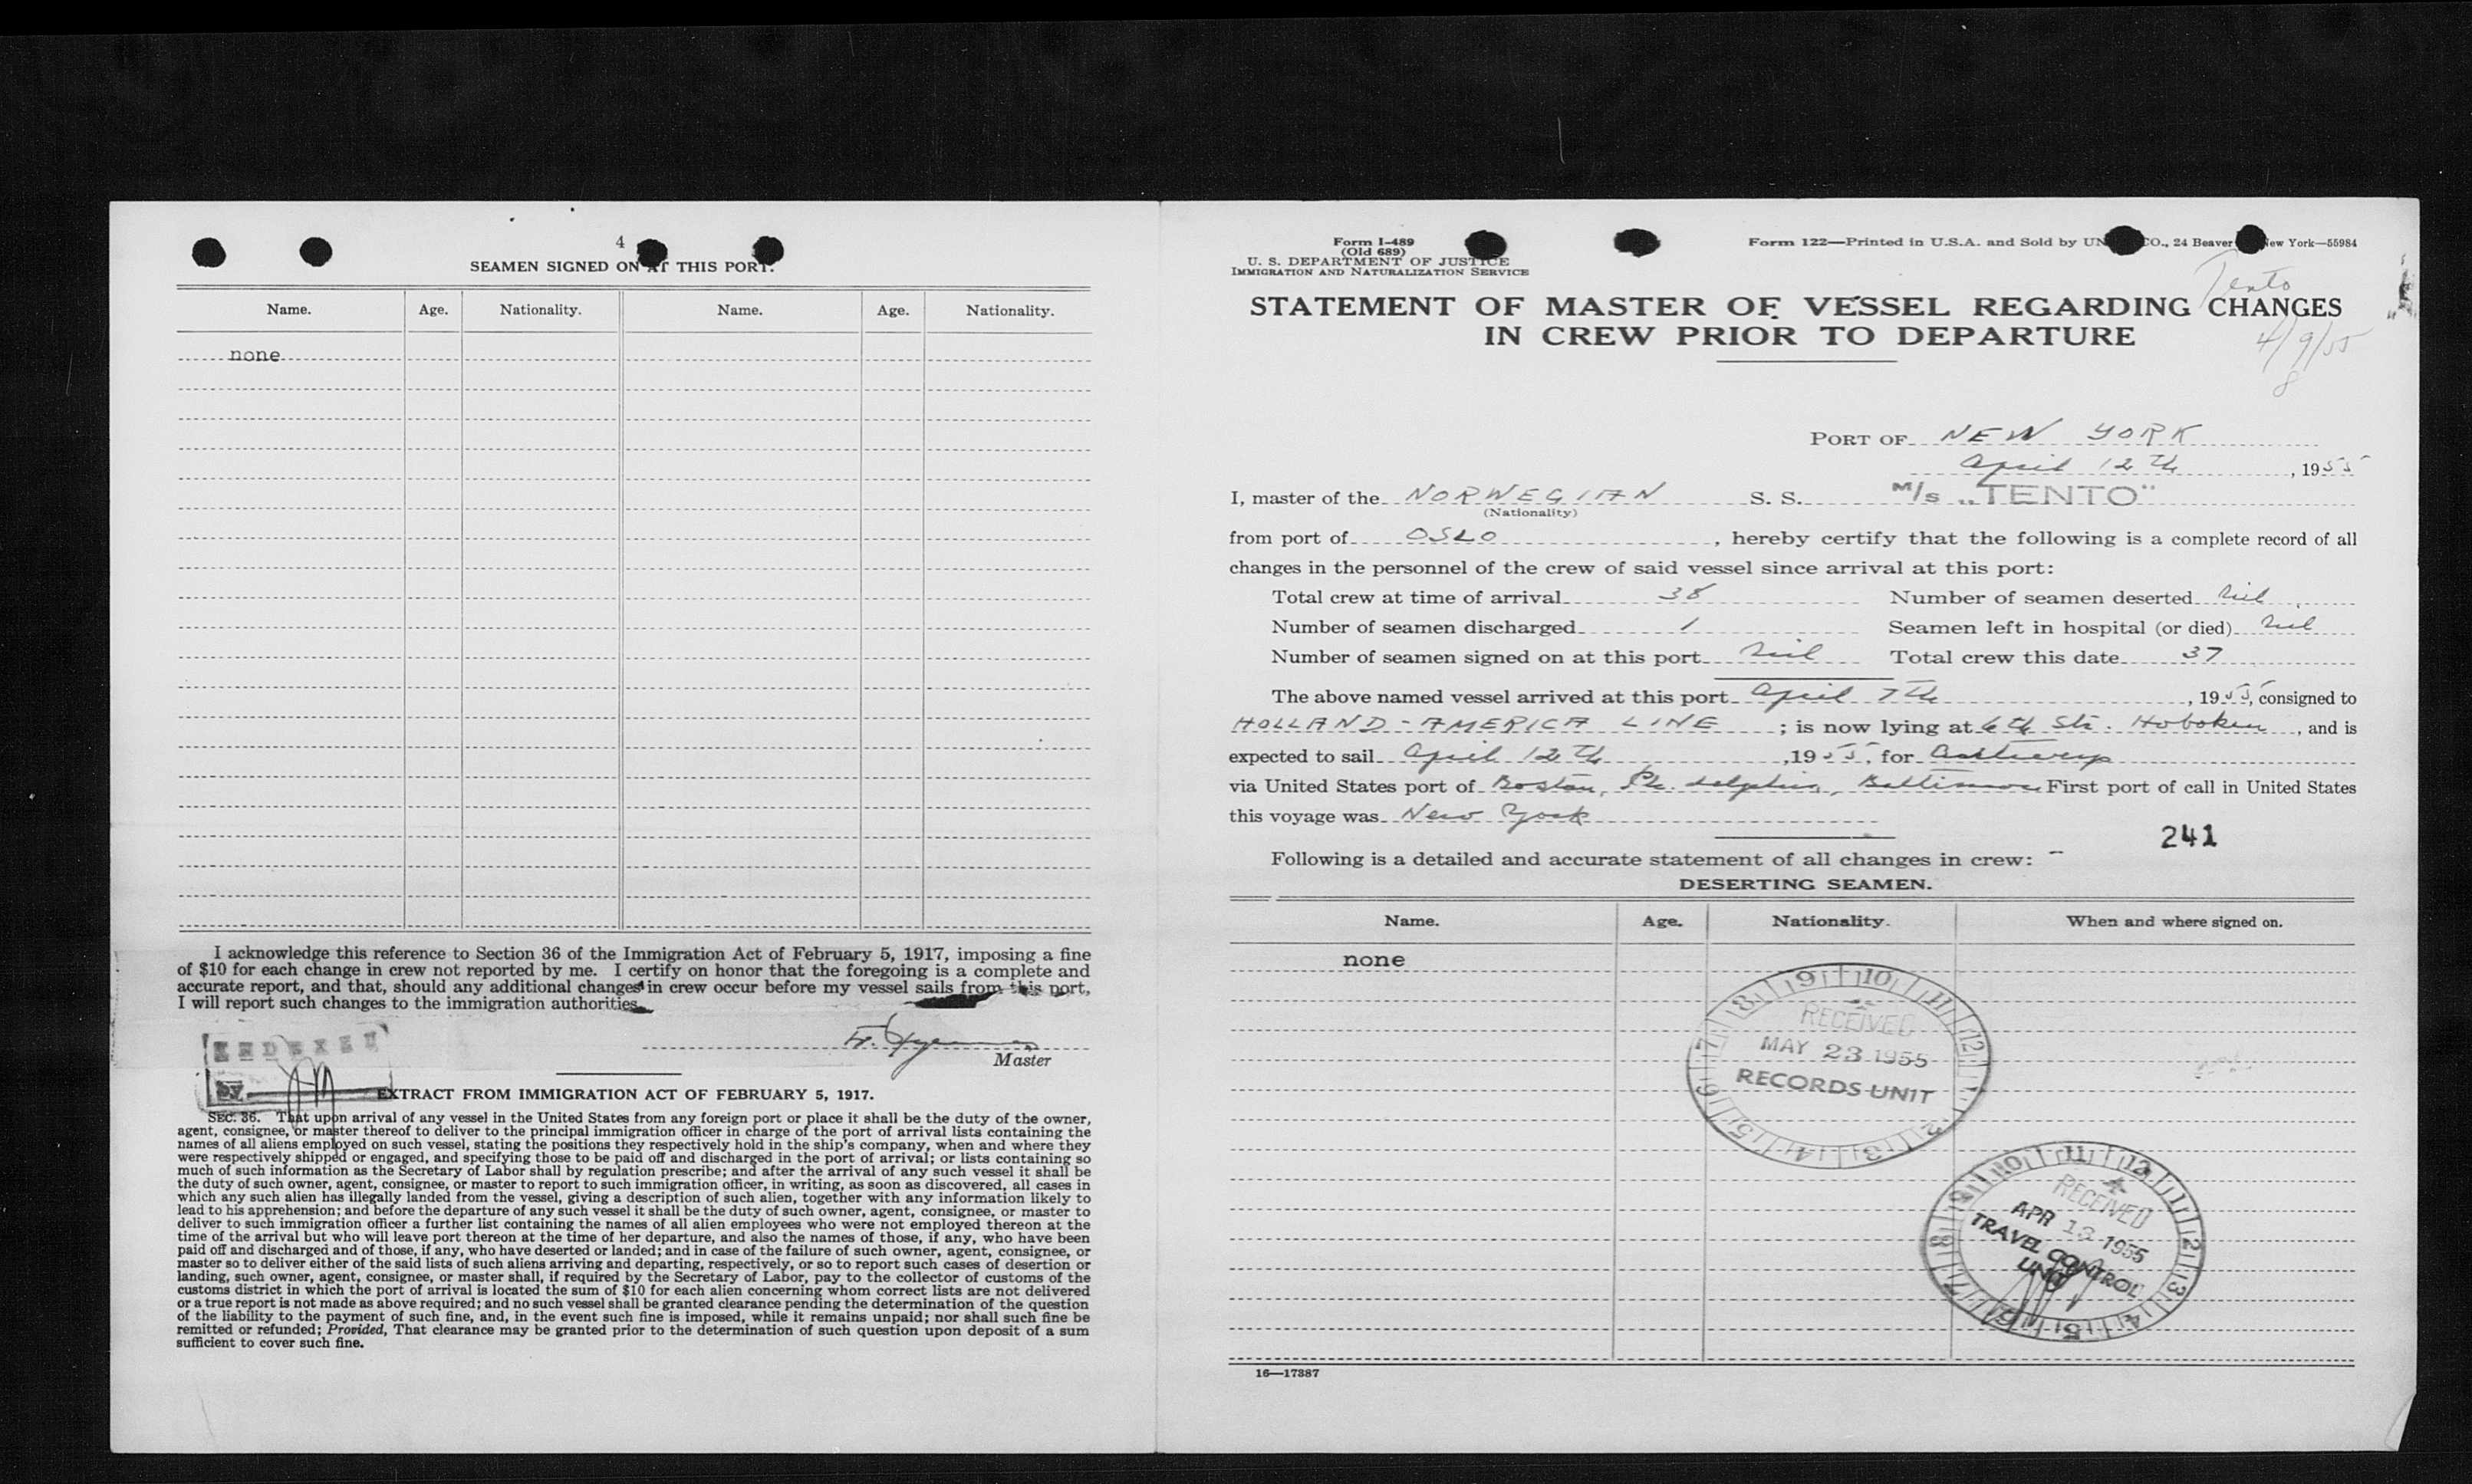 4
SEAMEN SIGNED ON AT THIS PORT.
Name. Age. Nationality. Name. Age. Nationality.
none
I acknowledge this reference to Section 36 of the Immigration Act of February 5, 1917, imposing a fine
of $10 for each change in crew not reported by me. I certify on honor that the foregoing is a complete and
accurate report, and that, should any additional changes in crew occur before my vessel sails from this port,
I will report such changes to the immigration authorities.
Master
INDEXED
by
EXTRACT FROM IMMIGRATION ACT OF FEBRUARY 5, 1917.
SEC. 36. That upon arrival of any vessel in the United States from any foreign port or place it shall be the duty of the owner,
agent, consignee, or master thereof to deliver to the principal immigration officer in charge of the port of arrival lists containing the
names of all aliens employed on such vessel, stating the positions they respectively hold in the ship's company, when and where they
were respectively shipped or engaged, and specifying those to be paid off and discharged in the port of arrival; or lists containing so
much of such information as the Secretary of Labor shall by regulation prescribe; and after the arrival of any such vessel it shall be
the duty of such owner, agent, consignee, or master to report to such immigration officer, in writing, as soon as discovered, all cases in
which any such alien has illegally landed from the vessel, giving a description of such alien, together with any information likely to
lead to his apprehension; and before the departure of any such vessel it shall be the duty of such owner, agent, consignee, or master to
deliver to such immigration officer a further list containing the names of all alien employees who were not employed thereon at the
time of the arrival but who will leave port thereon at the time of her departure, and also the names of those, if any, who have been
paid off and discharged and of those, if any, who have deserted or landed; and in case of the failure of such owner, agent, consignee, or
master so to deliver either of the said lists of such aliens arriving and departing, respectively, or so to report such cases of desertion or
landing, such owner, agent, consignee, or master shall, if required by the Secretary of Labor, pay to the collector of customs of the
customs district in which the port of arrival is located the sum of $10 for each alien concerning whom correct lists are not delivered
or a true report is not made as above required; and no such vessel shall be granted clearance pending the determination of the question
of the liability to the payment of such fine, and, in the event such fine is imposed, while it remains unpaid; nor shall such fine be
remitted or refunded; Provided, That clearance may be granted prior to the determination of such question upon deposit of a sum
sufficient to cover such fine.
Form I-489
(Old 689)
U. S. DEPARTMENT OF JUSTICE
IMMIGRATION AND NATURALIZATION SERVICE
Form 122—Printed in U.S.A. and Sold by UN CO., 24 Beaver New York—55984
Tento
STATEMENT OF MASTER OF VESSEL REGARDING CHANGES
IN CREW PRIOR TO DEPARTURE
4/9/55
8
PORT OF NEW YORK
April 12th, 1955
I, master of the NORWEGIAN S. S. M/s „TENTO"
(Nationality)
from port of OSLO, hereby certify that the following is a complete record of all
changes in the personnel of the crew of said vessel since arrival at this port:
Total crew at time of arrival 38 Number of seamen deserted Nil
Number of seamen discharged 1 Seamen left in hospital (or died) Nil
Number of seamen signed on at this port Nil Total crew this date 37
The above named vessel arrived at this port April 7th, 1955, consigned to
HOLLAND-AMERICA LINE; is now lying at 6th Str. Hoboken, and is
expected to sail April 12th, 1955, for Antwerp
via United States port of Boston, Philadelphia, Baltimore First port of call in United States
this voyage was New York
241
Following is a detailed and accurate statement of all changes in crew:
DESERTING SEAMEN.
Name. Age. Nationality. When and where signed on.
none
9 10 11 12 2 3 4 5 6 7 8
RECEIVED
MAY 23 1955
RECORDS UNIT
10 11 12 1 2 3 4 5 6 7 8 9
RECEIVED
APR 13 1955
TRAVEL CONTROL
UNIT
16—17387